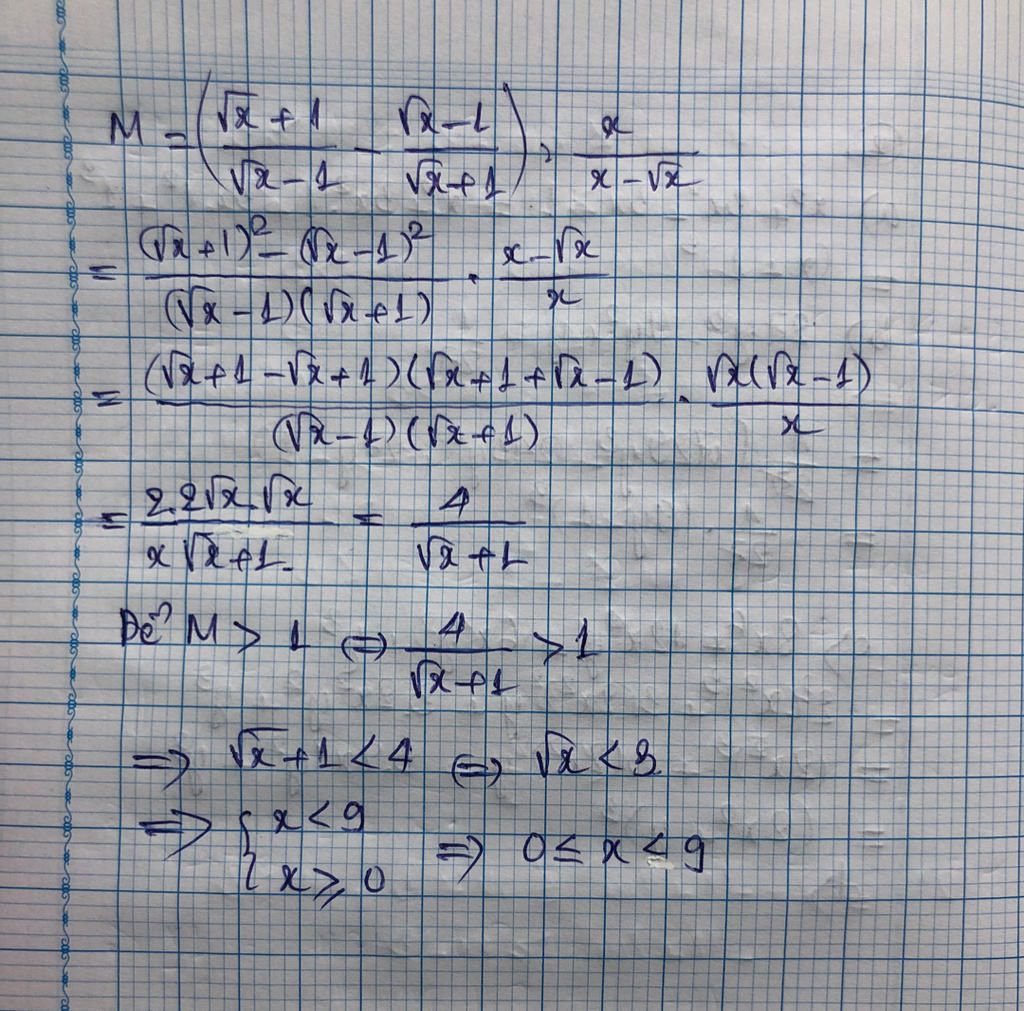 M = ((√x + 1)/(√x - 1) - (√x - 1)/(√x + 1)) : x/(x - √x)
= ((√x + 1)² - (√x - 1)²)/((√x - 1)(√x + 1)) . (x - √x)/x
= ((√x + 1 - √x + 1)(√x + 1 + √x - 1))/((√x - 1)(√x + 1)) . √x(√x - 1)/x
= (2.2√x.√x)/(x √x + 1) = 4/(√x + 1)
Để M > 1 ⇔ 4/(√x + 1) > 1
⇒ √x + 1 < 4 ⇔ √x < 3
⇒ { x < 9
x ≥ 0 ⇒ 0 ≤ x < 9